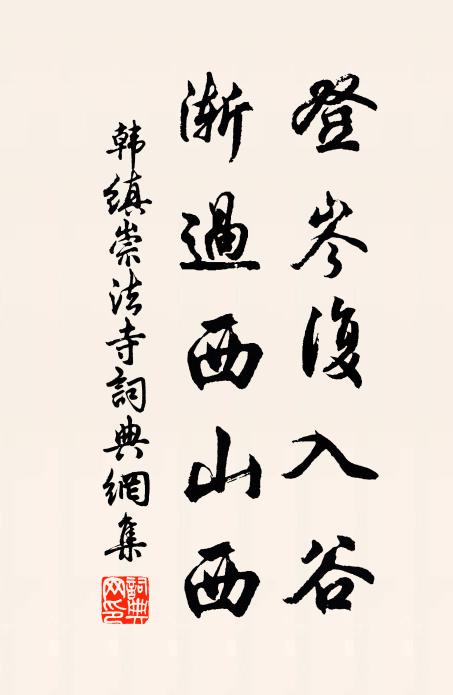 登岑復入谷
漸過西山西
韩縝崇法寺詞典網集
詞典網印